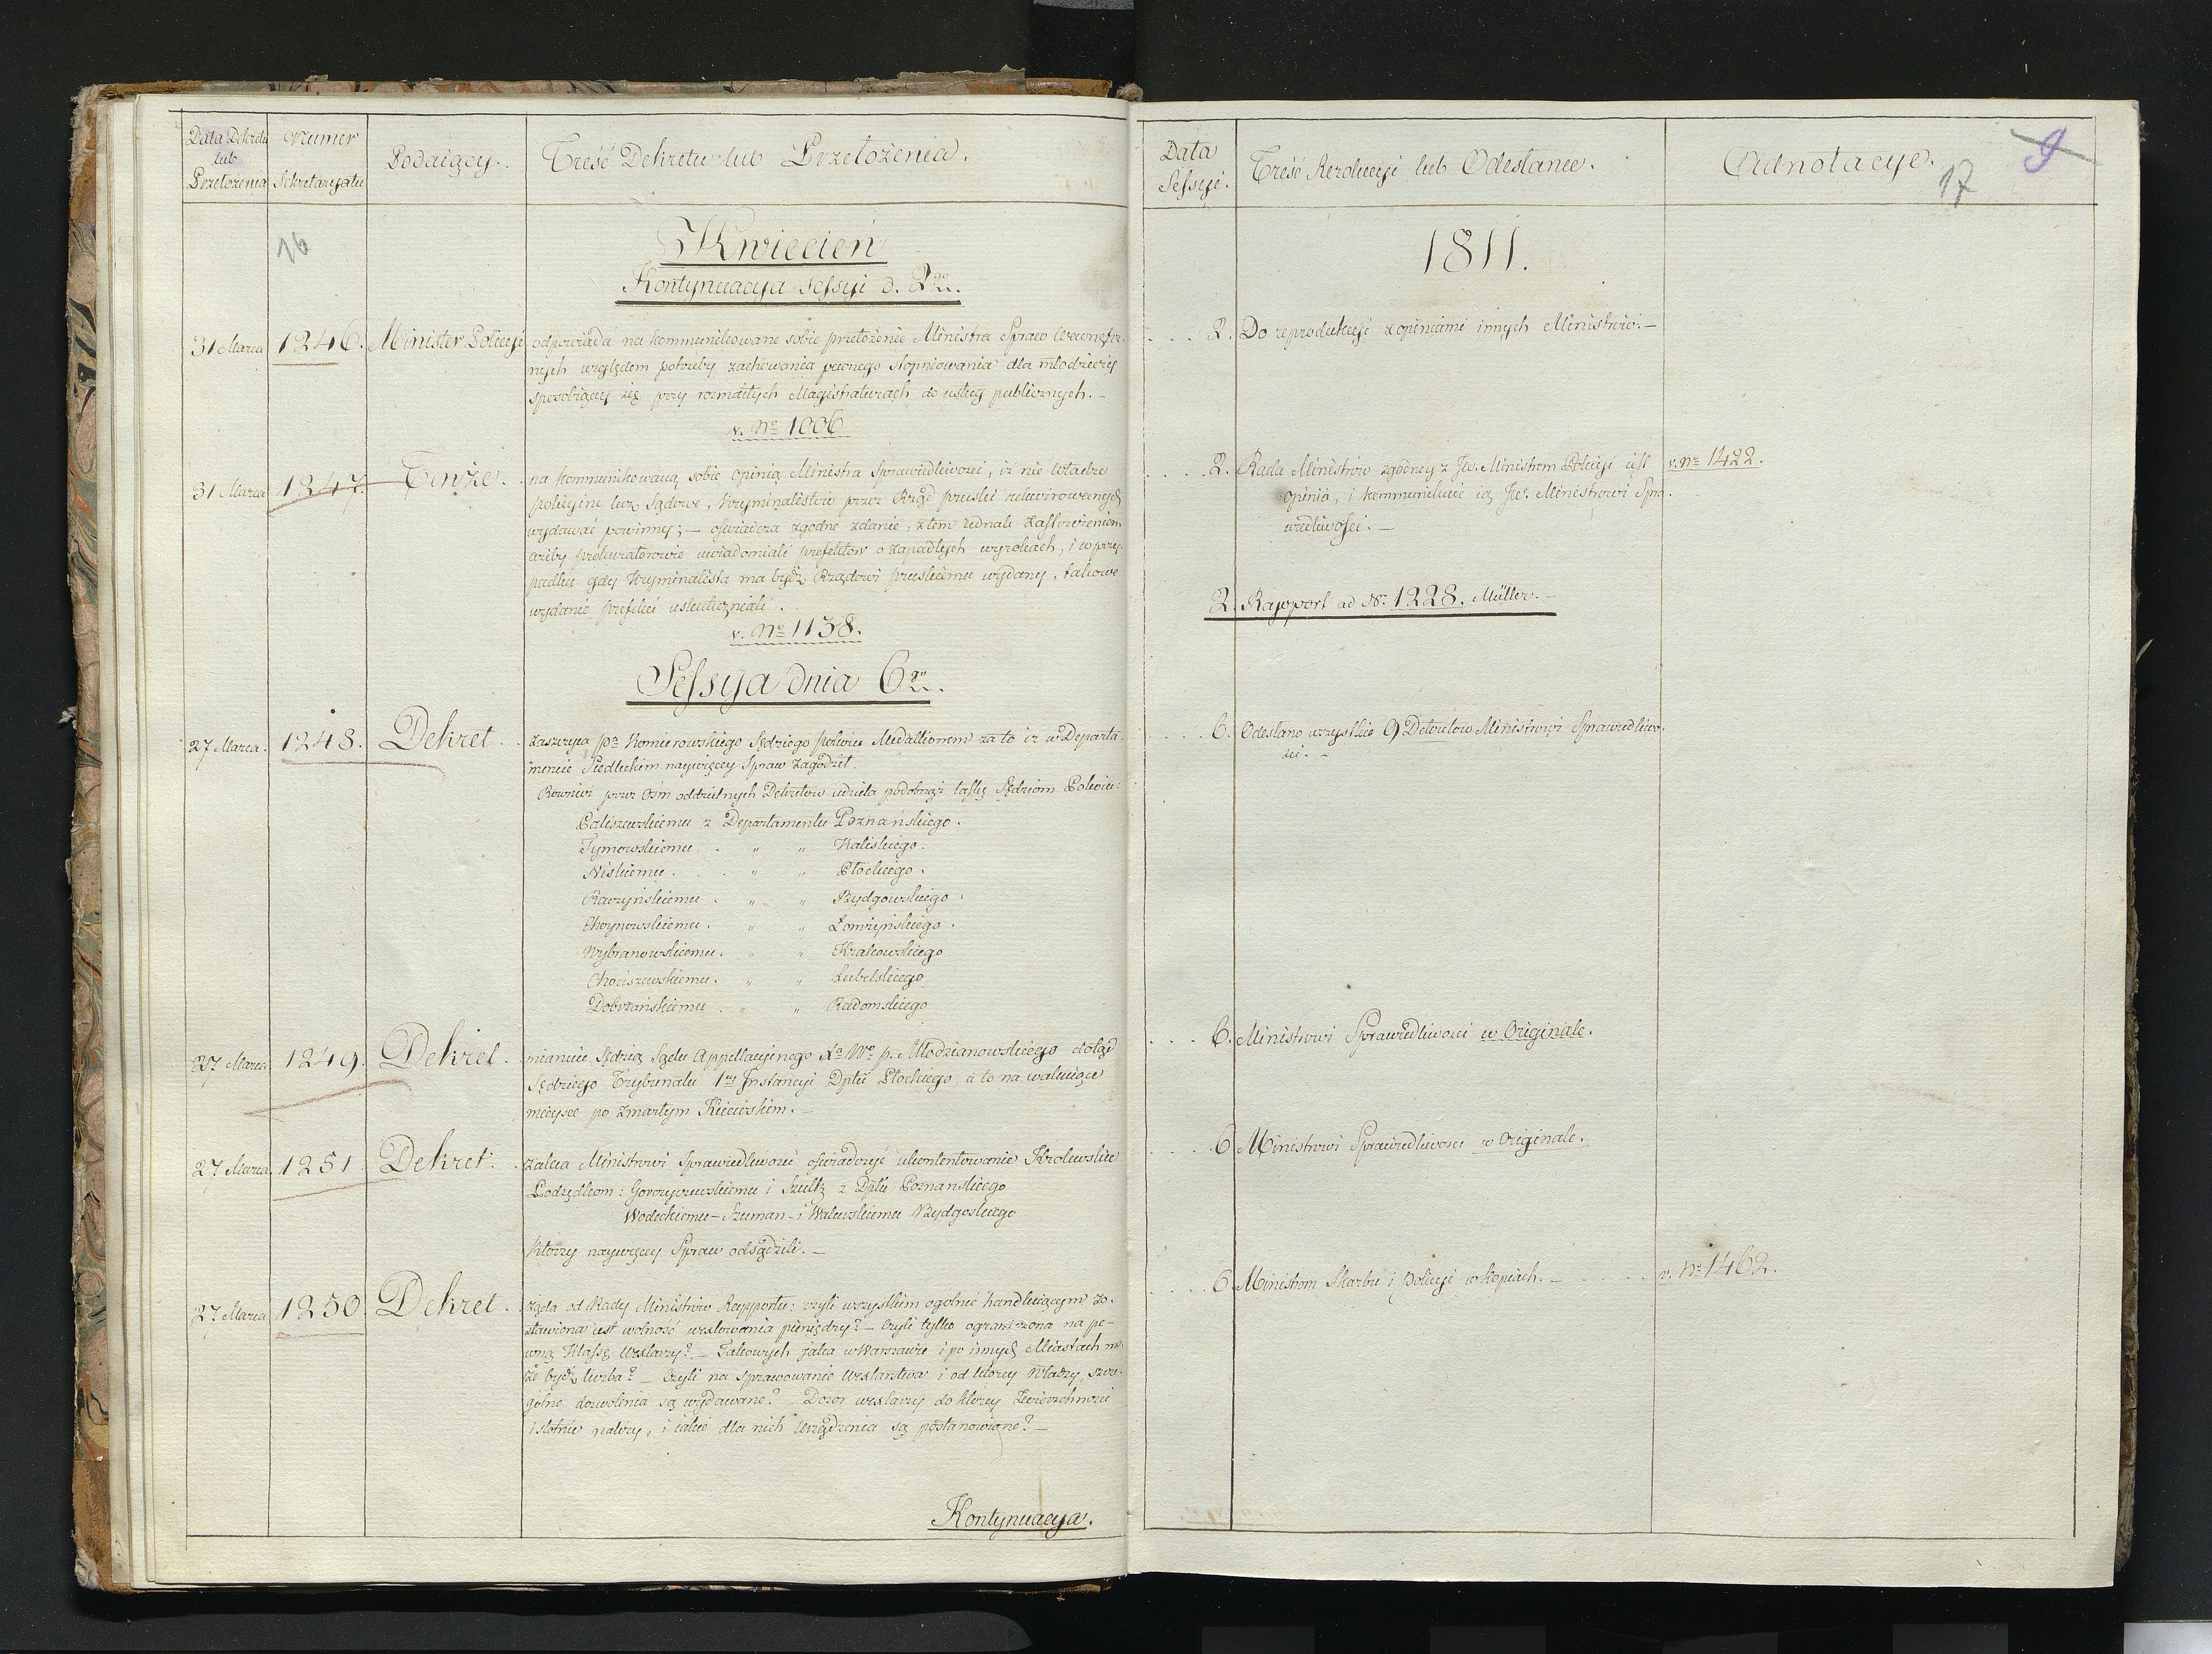 Data Dekretu
lub
Przełożenia
Numer
Sekretaryatu
Podaiący.
Treść Dekretu lub Przełożenia.
16
Kwiecień
Kontynuacya Sessyi d. 2go.
31 Marca 1246. Minister Policyi odpowiada na kommunikowane sobie przełożenie Ministra Spraw Wewnętrz-
nych względem potrzeby zachowania pewnego stopniowania dla młodzieży
sposobiącey się przy rozmaitych Magistraturach do usług publicznych. —
v. No 1006
31 Marca 1247. Tenże. na kommunikowaną sobie opinią Ministra Sprawiedliwości, iż nie Władze
policyine lecz Sądowe, Kryminalistów przez Rząd pruski rekwirowanych
wydawać powinny; — oświadcza zgodne zdanie, z tem iednak zastrzeżeniem
ażeby prokuratorowie uwiadomiali prefektów o zapadłych wyrokach, i w przy-
padku gdy Kryminalista ma bydź Rządowi pruskiemu wydany, takowe
wydanie prefekci uskuteczniali.
v. No 1138.
Sessya dnia 6go.
27 Marca. 1248. Dekret. zaszczyca pa Komierowskiego Sędziego pokoiu Medallionem za to iż w Departa-
mencie Siedleckim naywięcey Spraw zagodził.
Rownież przez Ośm oddzielnych Dekretow udziela podobnąż łaskę Sędziom Pokoiu:
Paliszewskiemu z Departamentu Poznańskiego.
Tymowskiemu . " " Kaliskiego.
Niskiemu . . " " Płockiego.
Raczyńskiemu . " " Bydgowskiego.
Choynowskiemu . " " Łomżyńskiego.
Wybranowskiemu . " " Krakowskiego
Chociszewskiemu . " " Lubelskiego
Dobrzańskiemu . " " Radomskiego
27 Marca 1249. Dekret. mianuie Sędzią Sądu Appellacyinego Xa Wo p. Młodzianowskiego dotąd
Sędziego Trybunału 1ey Instancyi Dptu Płockiego, a to na wakuiące
mieysce po zmarłym
27 Marca 1251. Dekret. zaleca Ministrowi Sprawiedliwości oświadczyć ukontentowanie Krolewskie
Podsędkom: Gorczyczewskiemu i Szultz z Dptu Poznanskiego
Wodeckiemu — Szuman — i Walewskiemu Bydgoskiego
ktorzy naywięcey Spraw odsądzili. —
27 Marca 1250. Dekret. żąda od Rady Ministrow Rapportu: czyli wszystkim ogolnie handluiącym zo-
stawiona iest wolność wexlowania pieniędzy? — Czyli tylko ograniczona na pe-
wną Klassę Wexlarzy? — Takowych iaka w Warszawie i po innych Miastach mo-
że bydź liczba? — Czyli na sprawowanie Wexlarstwa i od ktorey Władzy, szcze-
gólne dozwolenia są wydawane? Dozor wexlarzy do ktorey Zwierzchności
istotnie należy, i iakie dla nich urządzenia są postanowione? —
Kontynuacya.
Data
Sessyi.
Treść Rezolucyi lub Odesłanie.
Adnotacye.
17
9
1811.
2. Do reprodukcyi z opiniami innych Ministrów. —
2. Rada Ministrów zgodney z Jw. Ministrem Policyi iest v. No 1422.
opinii, i kommunikuie ią Jw. Ministrowi Spra-
wiedliwości. —
2. Rapport ad No 1228. Müller. —
6. Odesłano wszystkie 9 Dekretow Ministrowi Sprawiedliwo-
ści. —
6. Ministrowi Sprawiedliwości w Originale.
6 Ministrowi Sprawiedliwości w Originale.
6 Ministrom Skarbu i Policyi w kopiach. — v. No 1462.